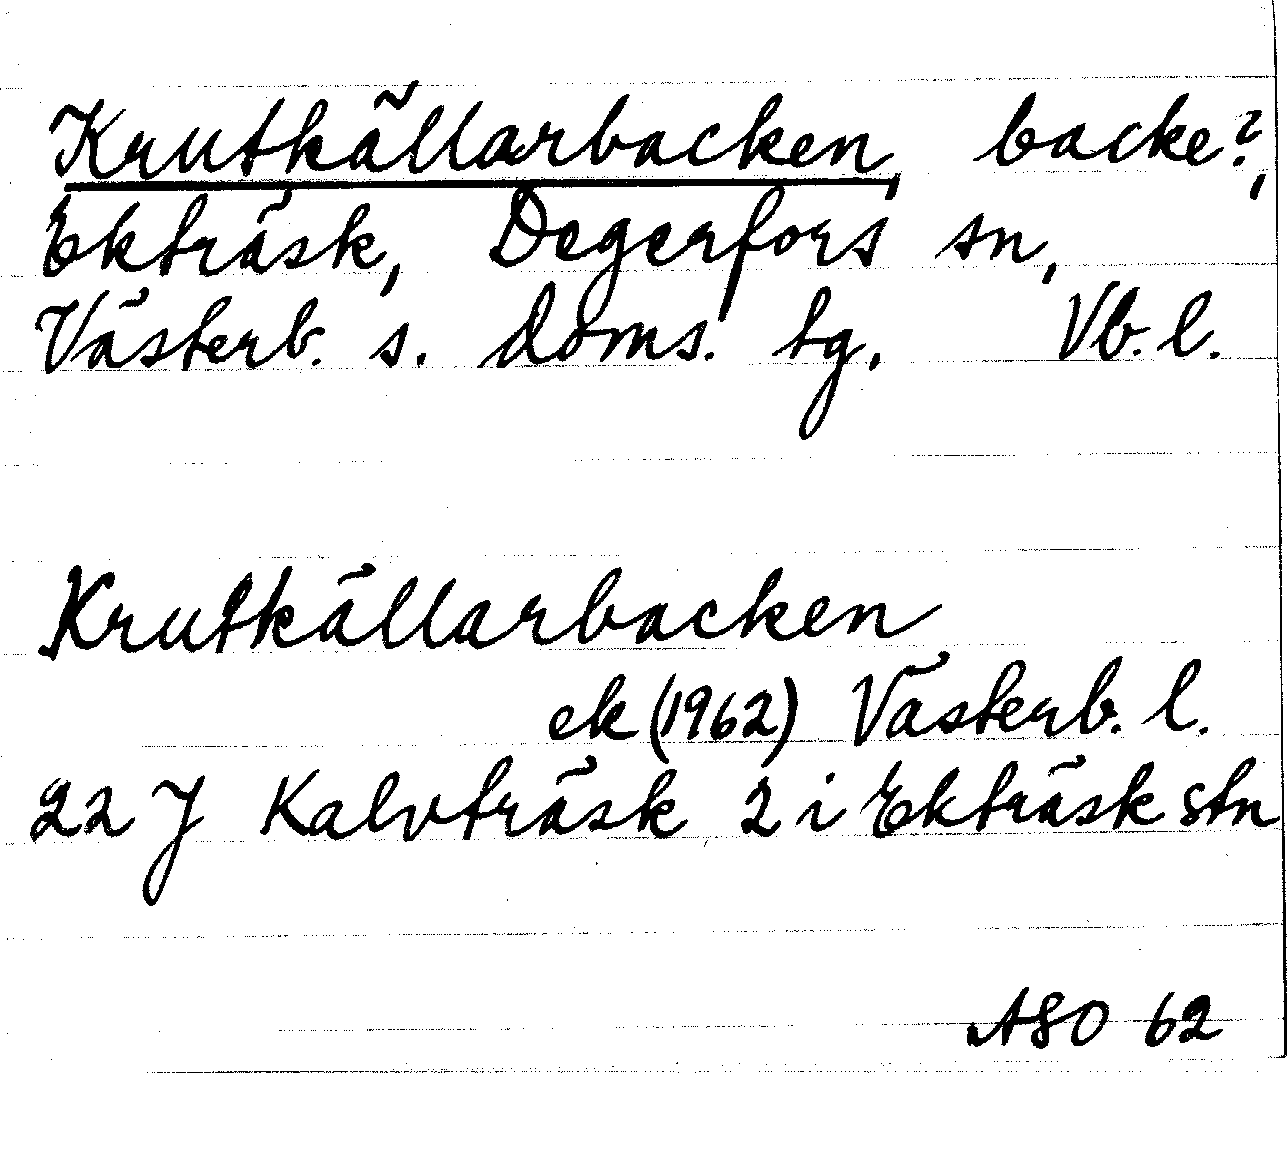 Krutkällarbacken, backe?,
Ekträsk, Degerfors sn,
Västerb. s. doms. tg. Vb. l.
Krutkällarbacken
ek (1962) Västerb. l.
22 J Kalvträsk 2 i Ekträsk stn
ASO 62